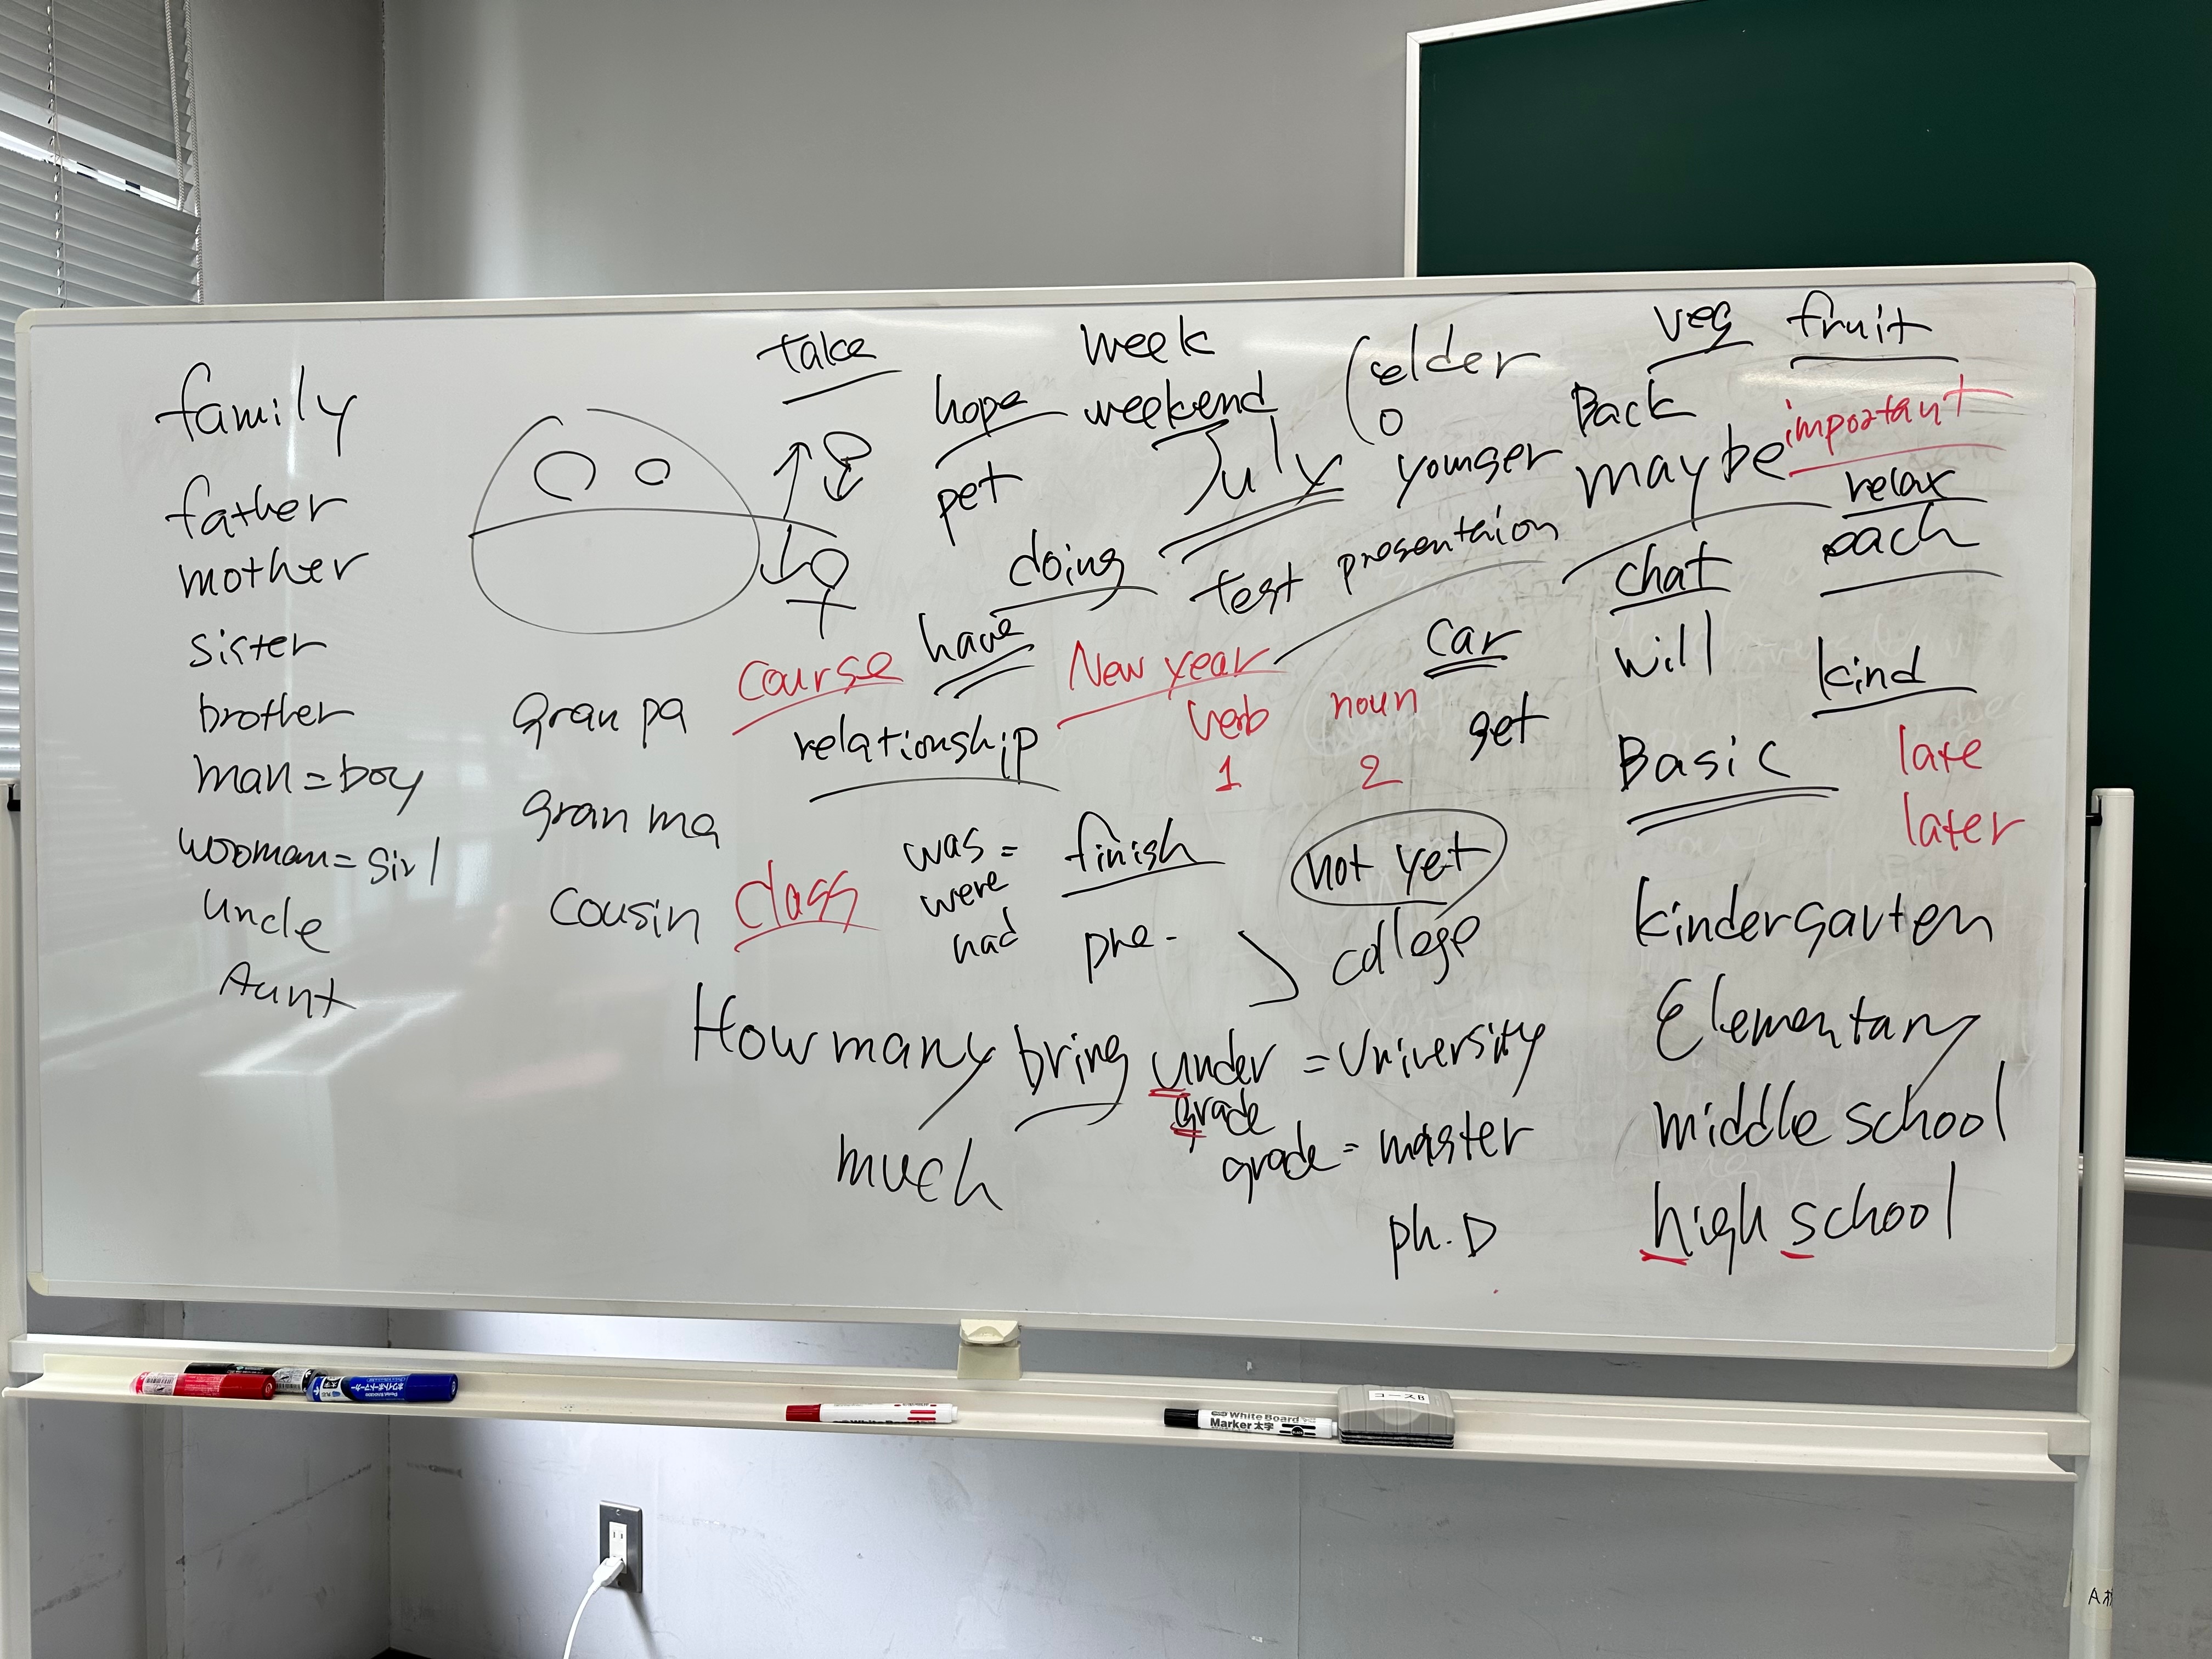 family
father
mother
sister
brother
man = boy
wooman = girl
uncle
Aunt
gran pa
gran ma
cousin
take
hope
pet
week
weekend
July
elder
younger
veg fruit
Back
important
maybe
relax
each
doing
test presentaion
chat
will
kind
have
course
New year
car
get
relationship
verb noun
1 2
Basic
late
later
class
was =
were
had
finish
pre-
not yet
college
How many bring
much
under = University
grade
grade = master
ph.D
kindergarten
Elementary
middle school
high school
White Board
Marker 太字
コースB